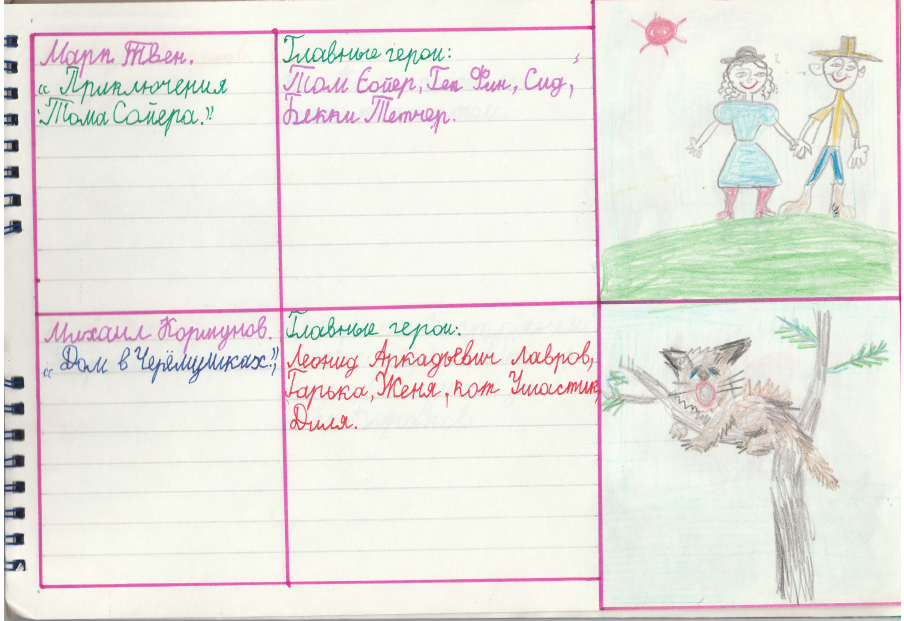 Марк Твен.
„Приключения
Тома Сойера."
Главные герои:
Том Сойер, Гек Фин, Сид,
Бекки Тетчер.
Михаил Коршунов.
„Дом в Черёмушках",
Главные герои:
Леонид Аркадьевич Лавров,
Гарька, Женя, кот Ушастик,
Диля.